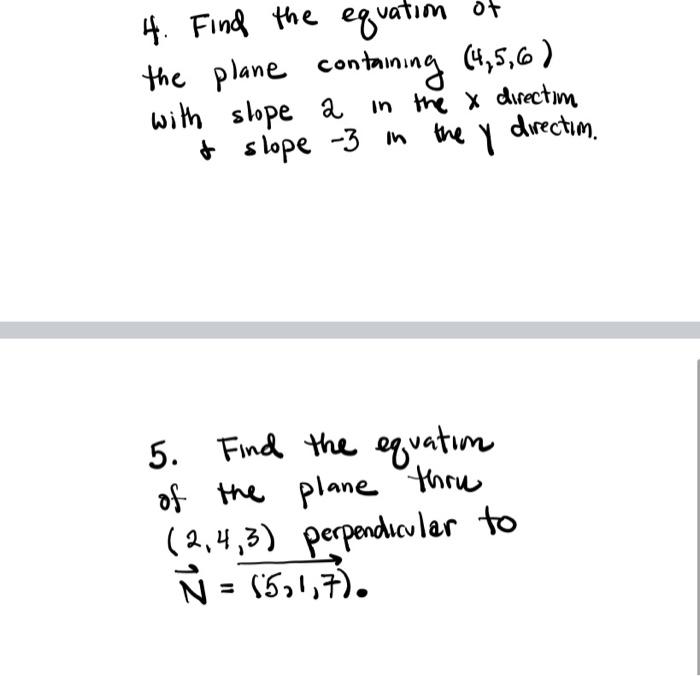 4. Find the equation of
the plane containing (4,5,6)
with slope 2 in the x direction
& slope -3 in the y direction.
5. Find the equation
of the plane thru
(2,4,3) perpendicular to
N = (5,1,7).